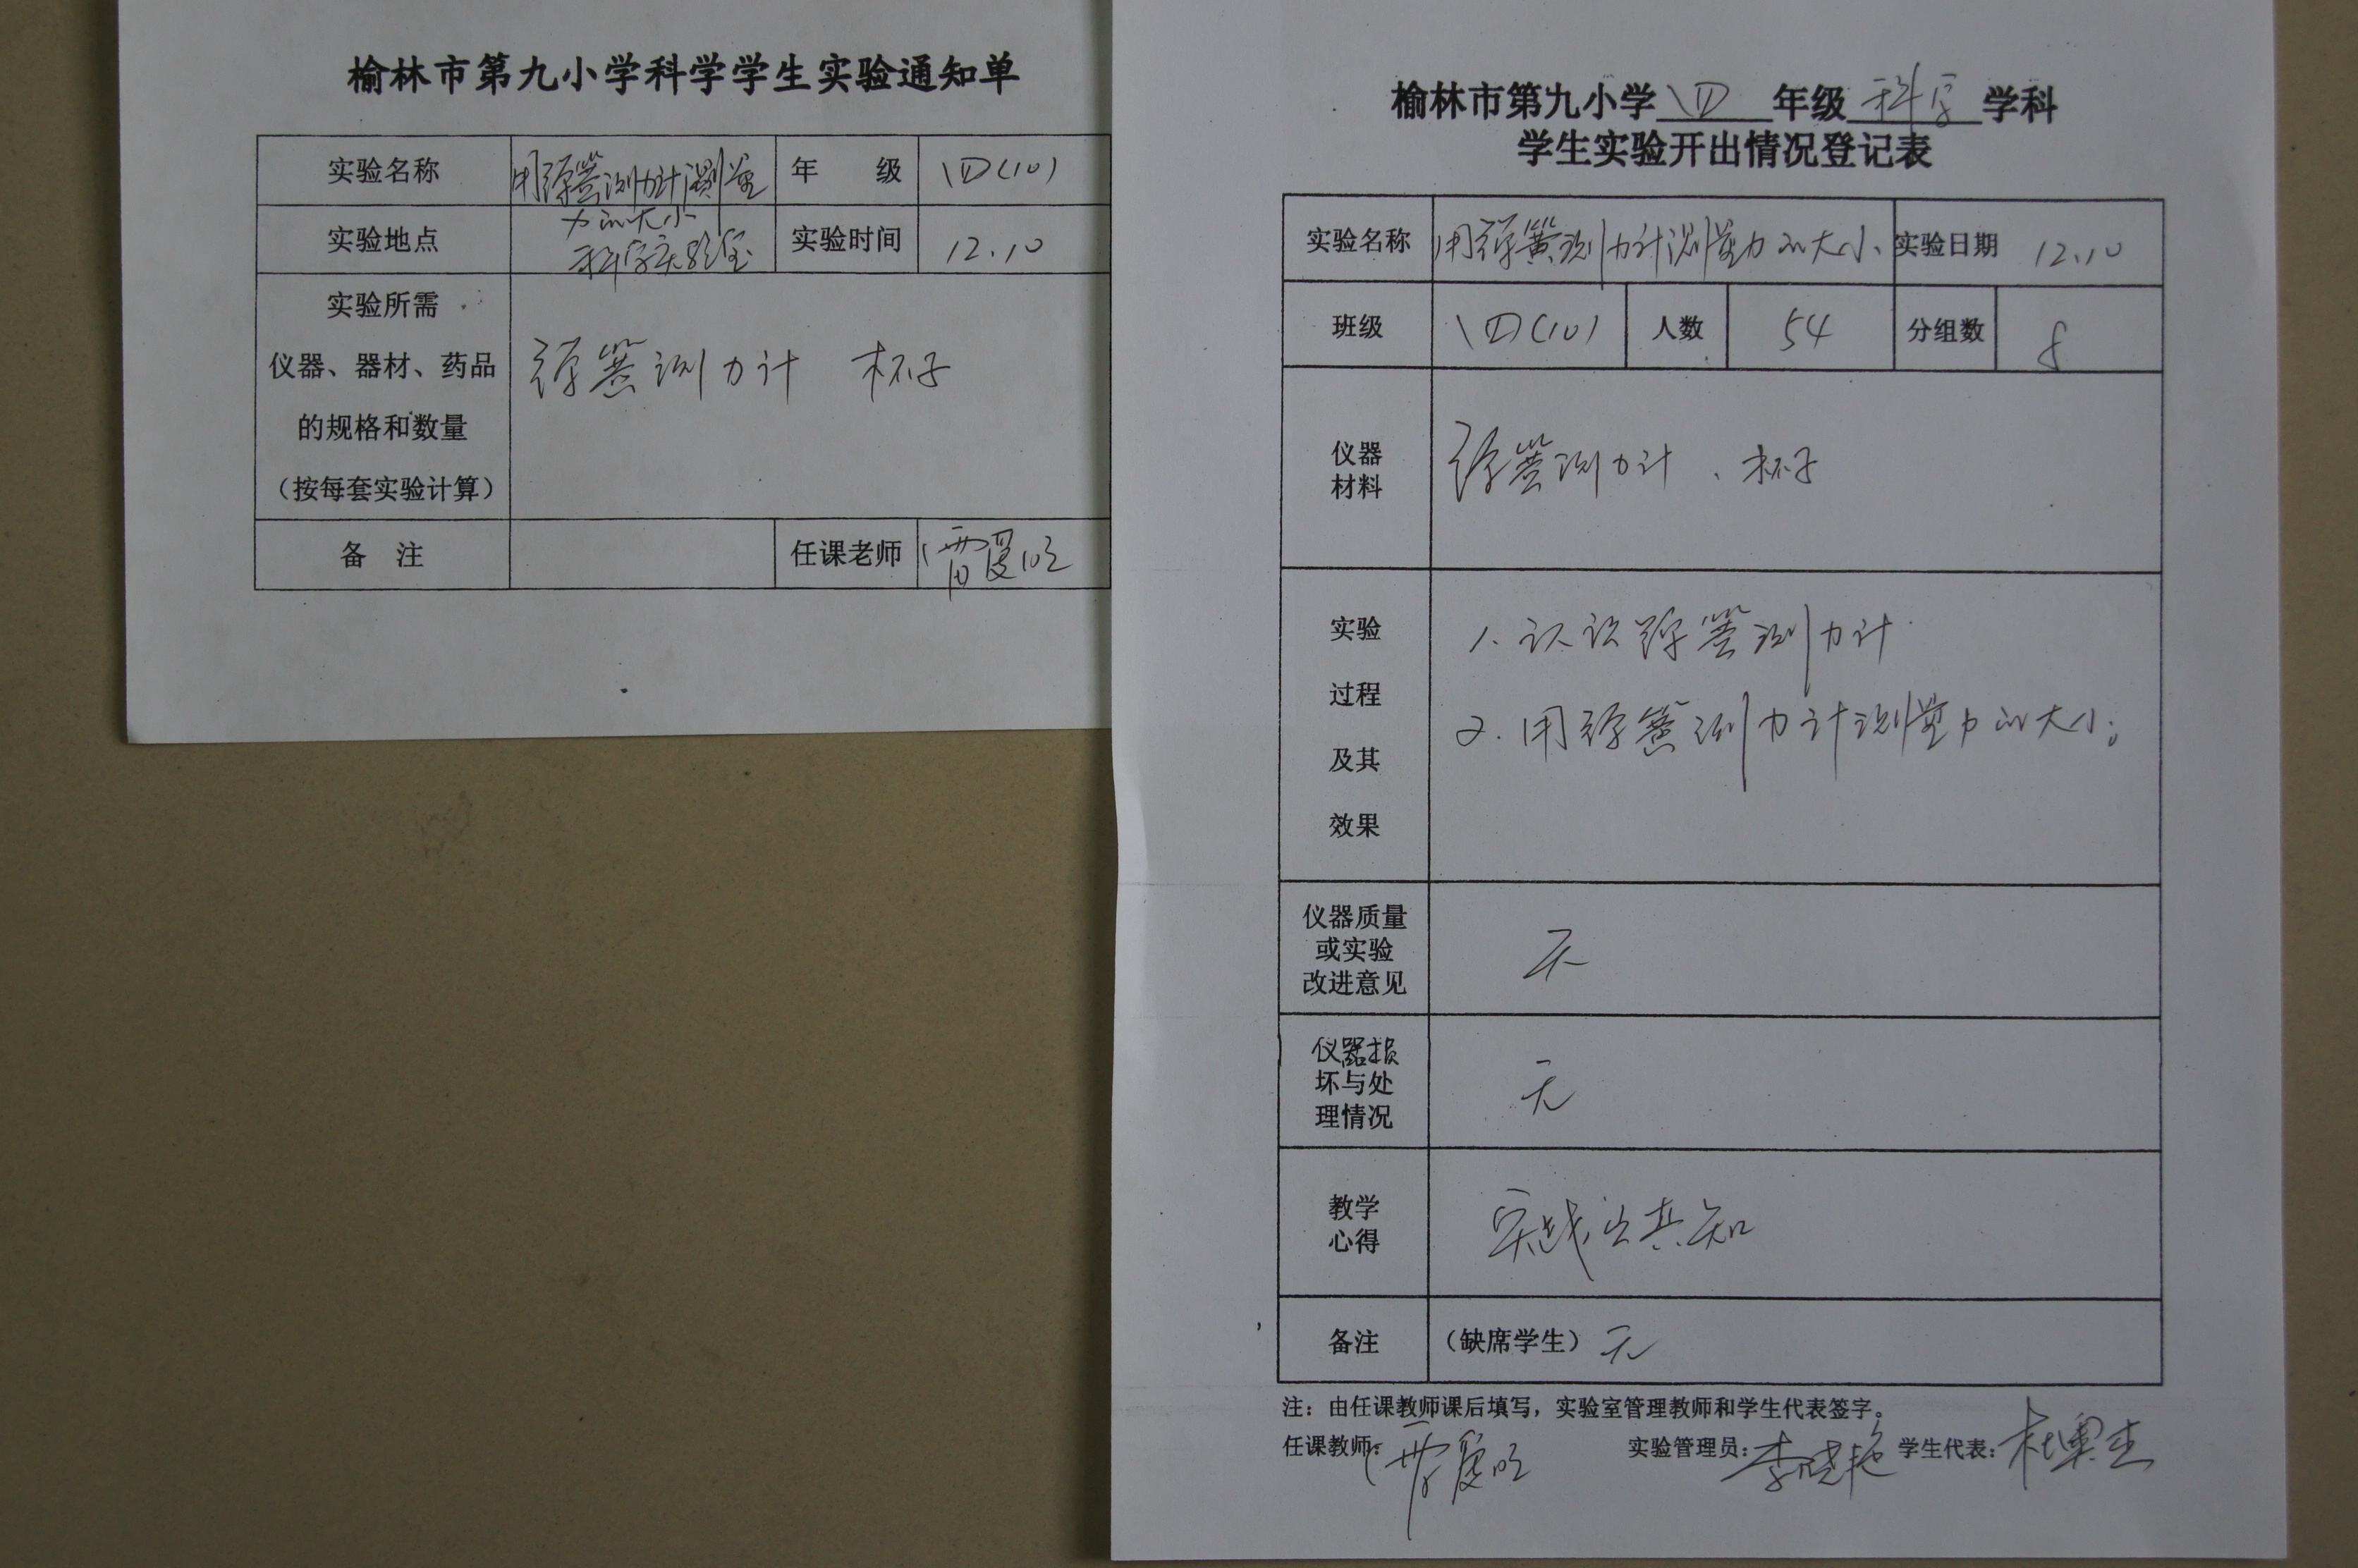 榆林市第九小学科学学生实验通知单
实验名称 用弹簧测力计测量力的大小 年 级 四(10)
实验地点 科学实验室 实验时间 12.10
实验所需
仪器、器材、药品
的规格和数量
（按每套实验计算）
弹簧测力计 杯子
备 注 任课老师
榆林市第九小学 四 年级 科学 学科
学生实验开出情况登记表
实验名称 用弹簧测力计测量力的大小 实验日期 12.10
班级 四(10) 人数 54 分组数 8
仪器
材料
弹簧测力计、杯子
实验
过程
及其
效果
1. 认识弹簧测力计
2. 用弹簧测力计测量力的大小;
仪器质量
或实验
改进意见
无
仪器损
坏与处
理情况
无
教学
心得
实践出真知
备注 （缺席学生）无
注：由任课教师课后填写，实验室管理教师和学生代表签字。
任课教师: 实验管理员: 李晓艳 学生代表: